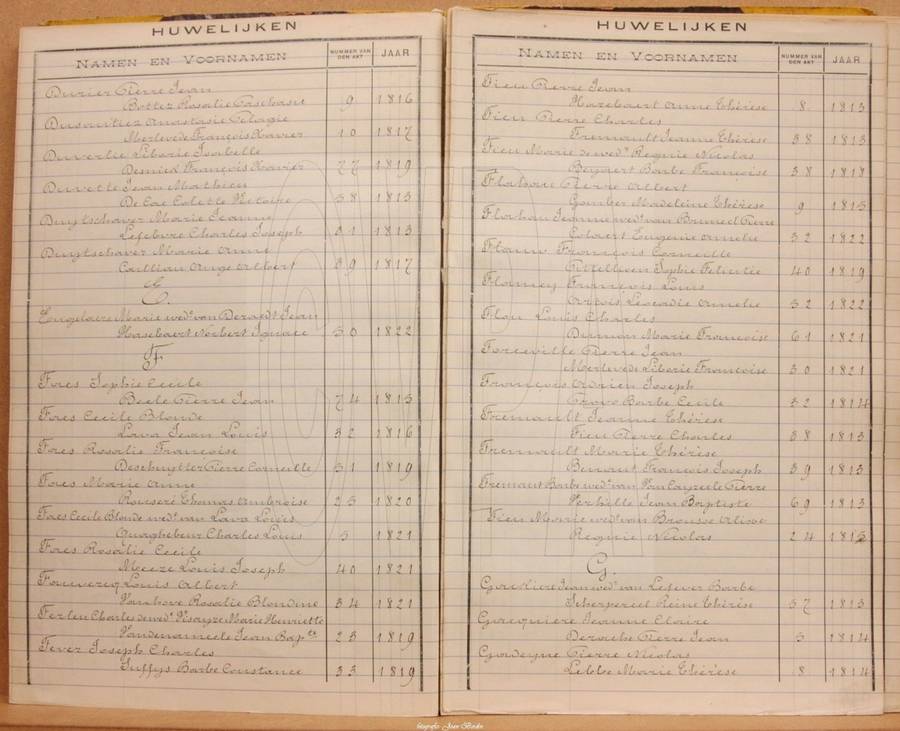 HUWELIJKEN
NAMEN EN VOORNAMEN
NUMMER VAN DEN AKT
JAAR
Durier Pierre Jean
Bottez Rosalie Paschase 9 1816
Dusautiez Anastasie Pélagie
Merlevede François Xavier 10 1817
Duverlie Liborie Isabelle
Desnick François Xavier 27 1819
Duvette Jean Mathieu
De Cae Colette Victoire 58 1813
Duytschaver Marie Jeanne
Lefebvre Charles Joseph 81 1813
Duytschaver Marie Anne
Cailliau Ange Albert 39 1817
E.
Engelaere Marie wedᵉ van Deraedt Jean
Hasebaert Norbert Ignace 30 1822
F
Faes Sophie Cecile
Beele Pierre Jean 74 1813
Faes Cecile Blonde
Lava Jean Louis 32 1816
Faes Rosalie Françoise
Deschuytter Pierre Corneille 31 1819
Faes Marie Anne
Rouseré Thomas Ambroise 23 1820
Faes Cecile Blonde wedᵉ van Lava Louis
Quaghebeur Charles Louis 3 1821
Faes Rosalie Cecile
Meeze Louis Joseph 40 1821
Fauverzeq Louis Albert
Vanhove Rosalie Blondine 34 1821
Ferlen Charles dewedᵉ Marie Henriette
Vandenameele Jean Bapᵗᵉ 23 1819
Fever Joseph Charles
Juffys Barbe Constance 33 1819
HUWELIJKEN
NAMEN EN VOORNAMEN
NUMMER VAN DEN AKT
JAAR
Fieu Pierre Jean
Hazebaert Anne Thérèse 8 1813
Fieu Pierre Charles
Fremault Jeanne Thérèse 38 1813
Fieu Marie de wedᵉ Requie Nicolas
Beyaert Barbe Françoise 38 1818
Flahou Pierre Albert
Gomber Madeleine Thérèse 9 1815
Flahau Jeanne wedᵉ van Bruneel Pierre
Eugène Amelie 32 1822
Flauw François Corneille
Sophie Felicitée 40 1819
Flouney François Louis
Artois Leocadie Amelie 32 1822
Flou Louis Charles
Dumon Marie Françoise 61 1821
Foreeville Pierre Jean
Merlevede Liborie Françoise 30 1821
François Adrien Joseph
Barbe Cecile 32 1814
Fremault Jeanne Thérèse
Fieu Pierre Charles 38 1813
Fremault Marie Thérèse
Benaut François Joseph 39 1813
Fremaut Barbe wedᵉ van Van Cayzeele Pierre
Verhille Jean Baptiste 69 1813
Fieu Marie wedᵉ van Brousse
Requie Nicolas 24 1813
G.
Jean wedᵉ van Lefever Barbe
Scherpereel Reine Thérèse 57 1813
Gacquiere Jeanne Claire
Derache Pierre Jean 3 1814
Gadeyne Pierre Nicolas
Libbe Marie Thérèse 8 1814